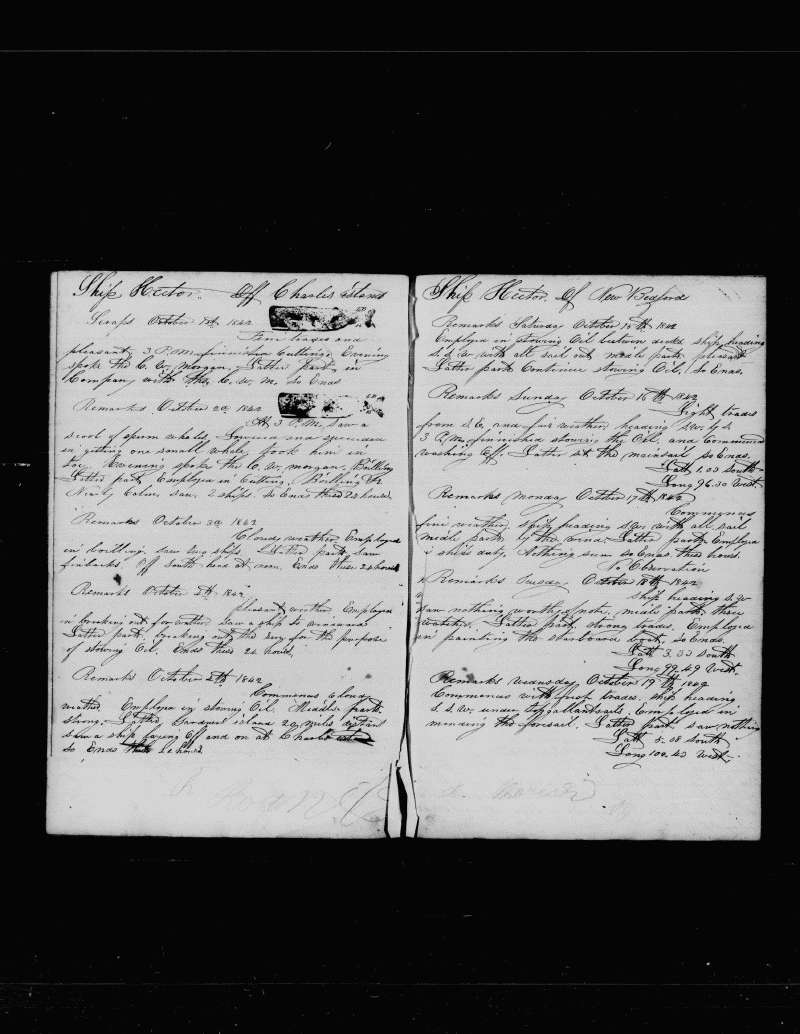 Ship Hector. Off Charles island
Scraps October 1st 1842
Fine trades and
pleasant, 3 P.M. finnished Cutting. Evening
spoke the C. W. Morgan. Latter part in
Company with the C. W. M. So Ends
Remarks October 2d 1842
At 3 P.M. Saw a
scool of sperm whales, Lowered and succeeded
in gitting one small whale, took him in
Evening spoke the C. W. morgan. Boilling
Latter part Employed in Cutting. Boilling &c
Nearly Calm, saw 2 ships. So Ends these 24 hours.
Remarks October 3d 1842
Cloudy weather Employed
in boilling. saw two ships. Latter part saw
finbacks. Off South head at noon, Ends these 24 hours
Remarks October 1842
pleasant weather Employed
in breaking out for water. Saw a ship to
Latter part breaking out the for the purpose
of stowing Oil. Ends these 24 hours.
Remarks October 5th 1842
Commences cloudy
weather. Employed in stowing Oil. Middle part
strong. Latter, Gardners island 20 miles distant
saw a ship laying Off and on at Charles
So Ends these hours
Ship Hector Of New Bedford
Remarks Saturday October 15th 1842
Employed in stowing Oil between decks ship heading
S.S.W. with all sail out midle part pleasant
Latter part Continue stowing Oil. So Ends.
Remarks Sunday October 16th 1842
Light trades
from S.E. and fair weather, heading S.W. by S.
3 P.M. finnishid stowing the Oil, and commenced
washing Off. Latter set the mainsail so Ends.
Latt 1.03 South
Long 96.30 West
Remarks monday October 17th 1842
Commences
fine weather, ship heading S.W. with all sail
midle part by the wind. Latter part Employed
in ships duty. Nothing seen so Ends these hours.
No Observation
Remarks Tuesday October 18th 1842
Ship heading S.W
saw nothing worthy of note. midle part three
watches. Latter part strong trades. Employed
in painting the starboard boat. So Ends.
Latt 3.33 South
Long 99.49 West.
Remarks wensday October 19th 1842
Commences with trades. Ship heading
S.S.W. under topgallantsails. Employed in
mending the foresail. Latter part saw nothing
Latt 5.08 South
Long 100.43 West.